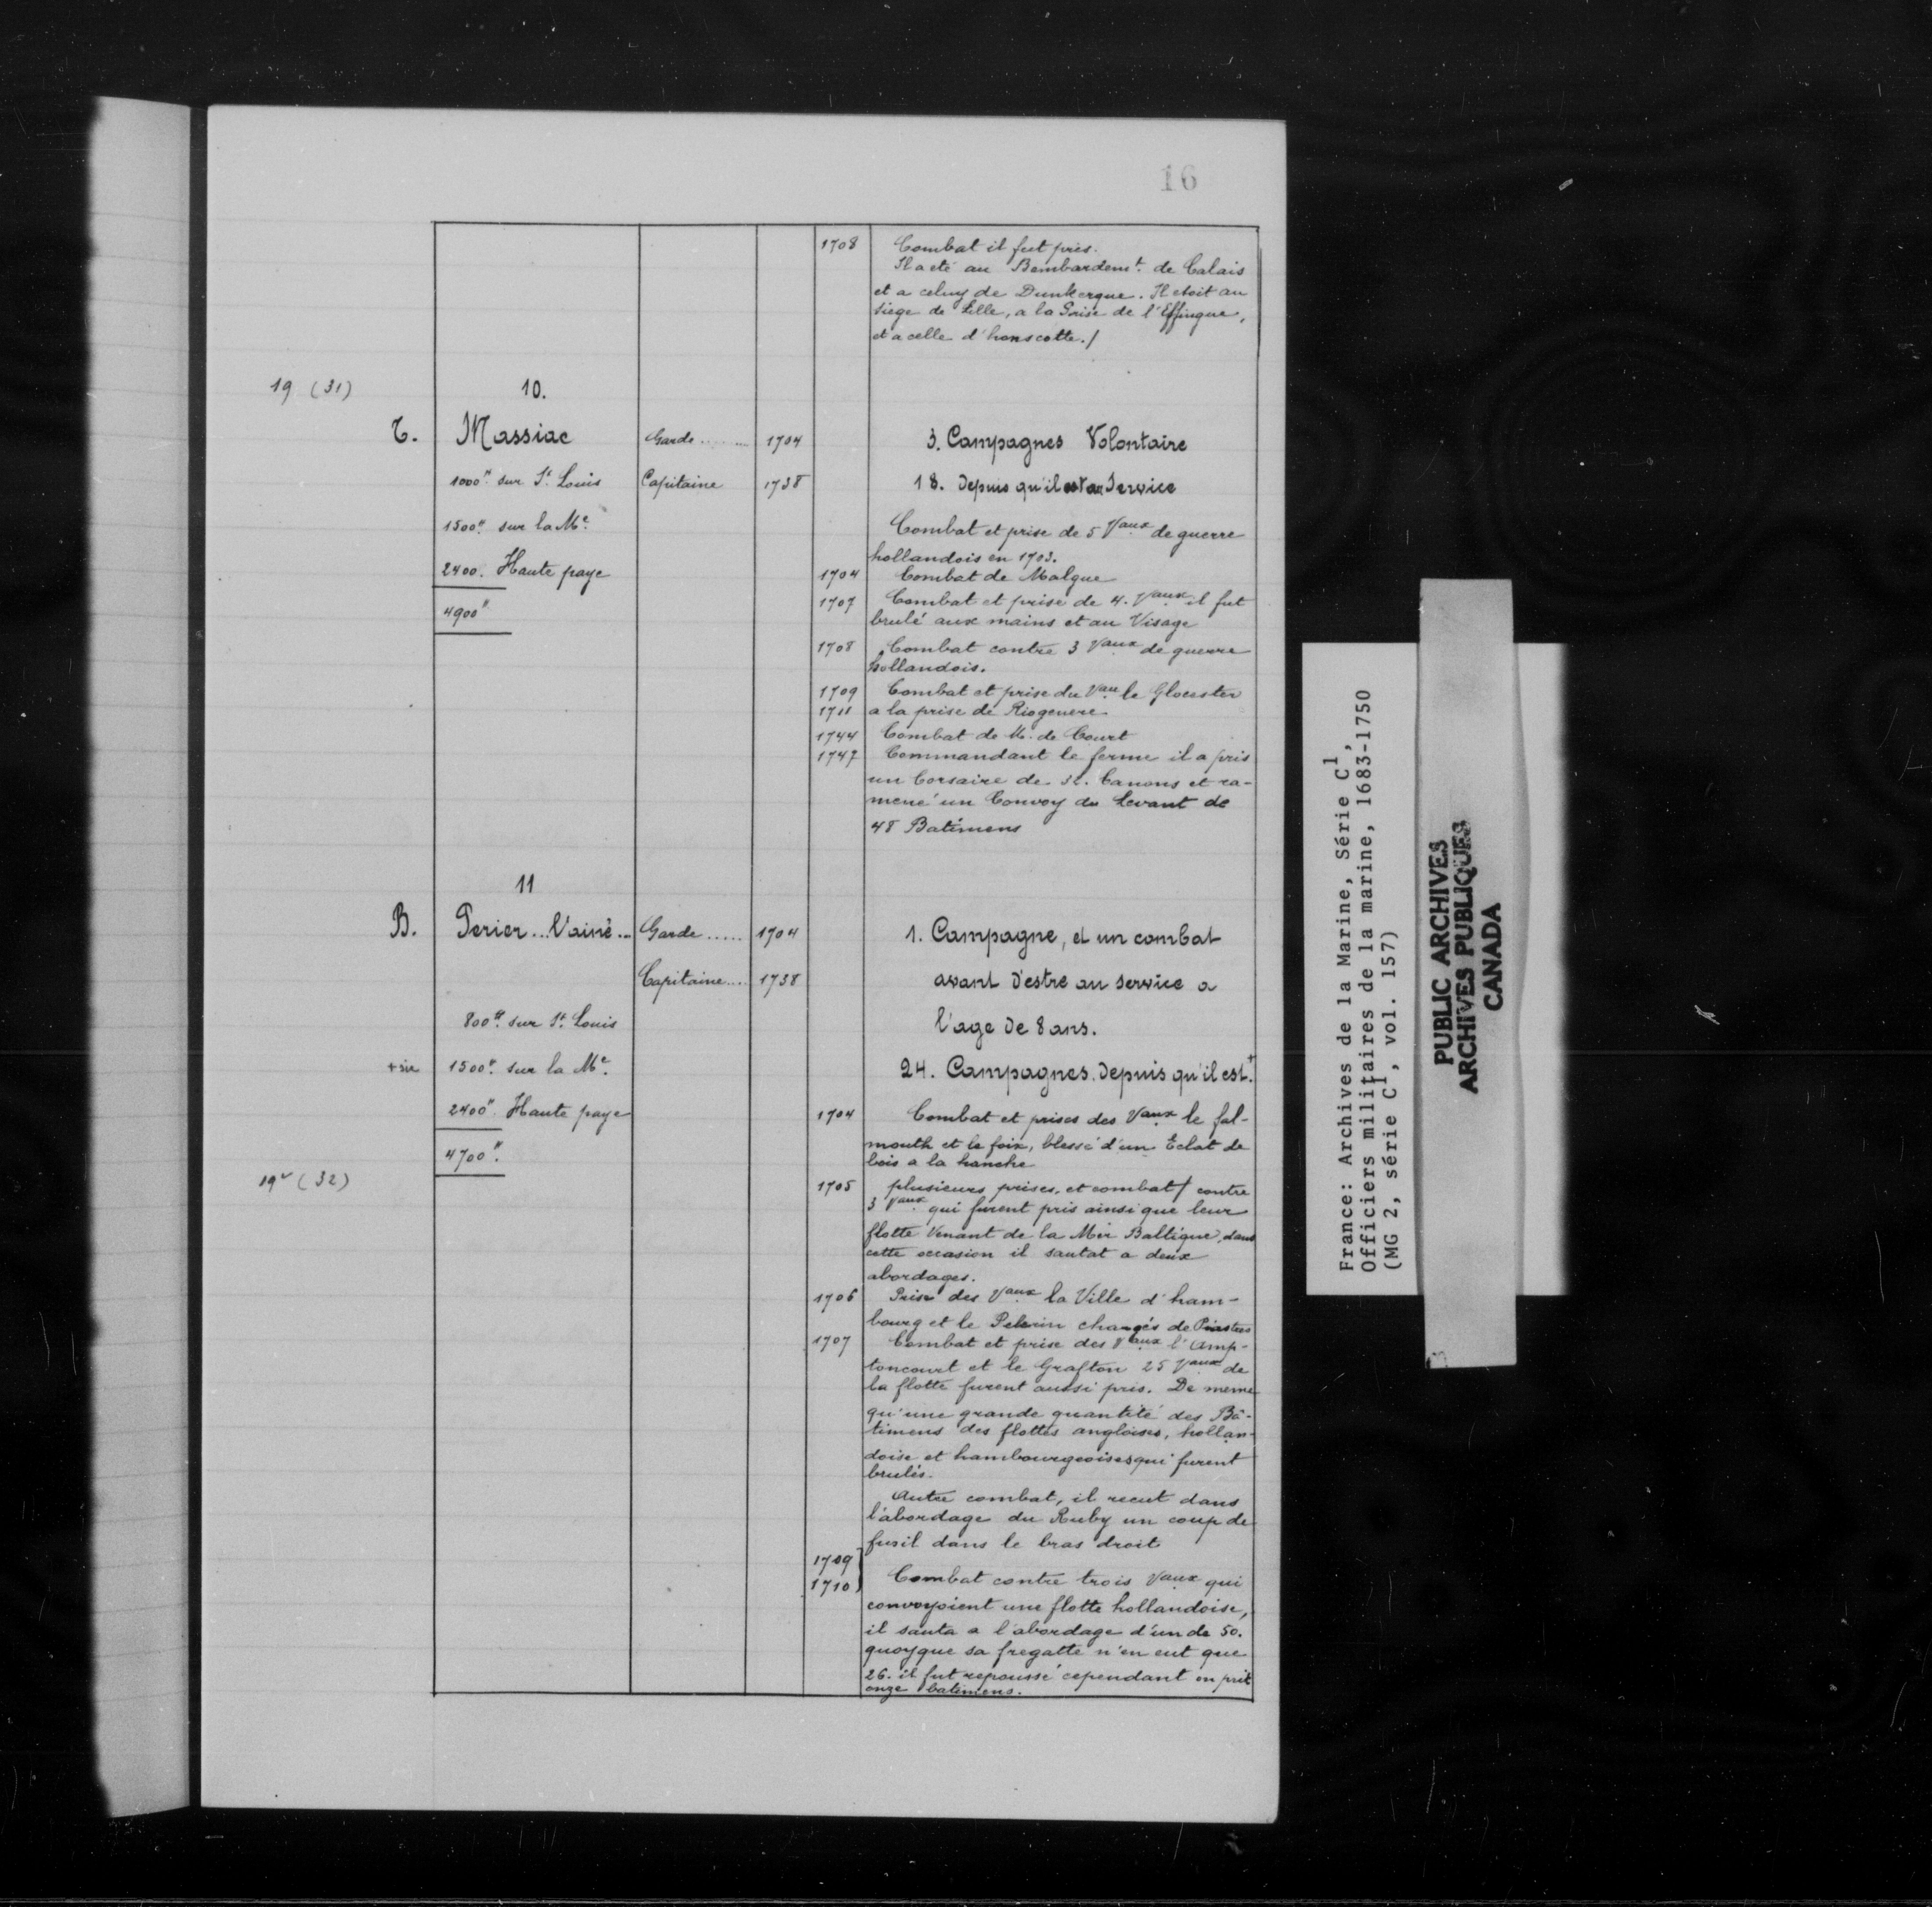 16
1708 Combat il fut pris.
Il a eté au Bombardemt. de Calais
et a celuy de Dunkerque. Il etoit au
siege de Lille, a la Prise de l'Effingue,
et a celle d'honscotte./
19 (31) 10.
T. Massiac Garde........ 1704 3. Campagnes Volontaire
1000tt. sur St. Louis Capitaine 1738 18. Depuis qu'il est au Service
1500tt. sur la Me. Combat et prise de 5 Vaux. de guerre
hollandois en 1703.
2400. Haute paye 1704 Combat de Malgue
4900tt 1707 Combat et prise de 4. Vaux. il fut
brulé aux mains et au Visage
1708 Combat contre 3 Vaux. de guerre
hollandois.
1709 Combat et prise du Vau. le Glocester
1711 a la prise de Riogenere
1744 Combat de M. de Court
1747 Commandant le ferme il a pris
un Corsaire de Canons et ra-
mené un Convoy du Levant de
48 Batimens
11
B. Perier...l'ainé... Garde..... 1704 1. Campagne, et un combat
Capitaine.... 1738 avant d'estre au service a
800tt. sur St. Louis l'age de 8 ans.
+ 1500tt. sur la Me. 24. Campagnes. Depuis qu'il est.+
2400tt. Haute paye 1704 Combat et prises des Vaux. le fal-
mouth et le foix, blessé d'un Eclat de
4700tt. bois a la hanche
19v (32) 1705 plusieurs prises, et combat/ contre
3 Vaux. qui furent pris ainsi que leur
flotte Venant de la Mer Baltique, dans
cette occasion il sautat a deux
abordages.
1706 Prise des Vaux. la Ville d'ham-
bourg et le Pelerin chargés de Piastres
1707 Combat et prise des Vaux. l'amp-
toncourt et le Grafton 25 Vaux. de
la flotte furent aussi pris. De meme
qu'une grande quantité des Bâ-
timens des flottes angloises, hollan-
doise et hambourgeoises qui furent
brulés.
Autre combat, il recut dans
l'abordage du Ruby un coup de
fusil dans le bras droit
1709}
1710} Combat contre trois Vaux. qui
convoyoient une flotte hollandoise,
il sauta a l'abordage d'un de 50.
quoyque sa fregatte n'en eut que
26. il fut repoussé cependant on prit
onze batimens.
France: Archives de la Marine, Série C1,
Officiers militaires de la marine, 1683-1750
(MG 2, série C1, vol. 157)
PUBLIC ARCHIVES
ARCHIVES PUBLIQUES
CANADA